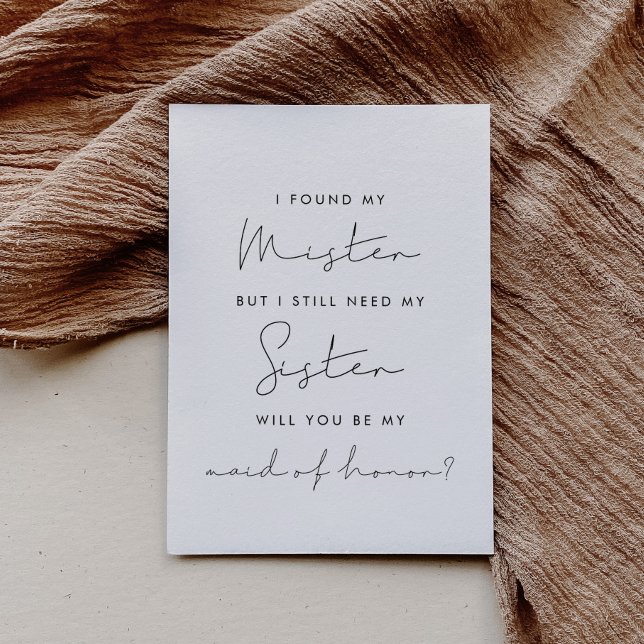 I FOUND MY
Mister
BUT I STILL NEED MY
Sister
WILL YOU BE MY
maid of honor?